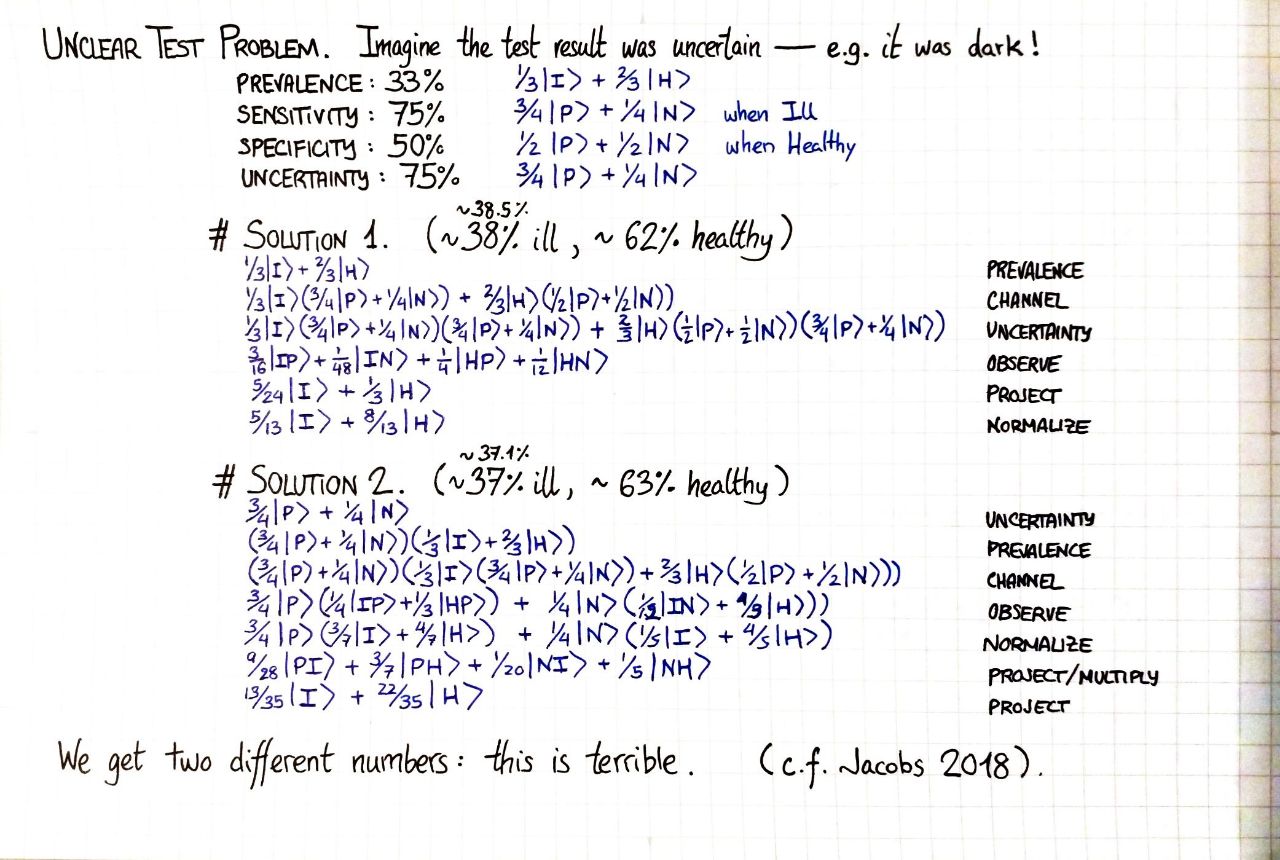 UNCLEAR TEST PROBLEM. Imagine the test result was uncertain — e.g. it was dark!
PREVALENCE : 33% 1/3|I> + 2/3|H>
SENSITIVITY : 75% 3/4|P> + 1/4|N> when Ill
SPECIFICITY : 50% 1/2|P> + 1/2|N> when Healthy
UNCERTAINTY : 75% 3/4|P> + 1/4|N>
~38.5%
# SOLUTION 1. (~38% ill, ~ 62% healthy)
1/3|I> + 2/3|H> PREVALENCE
1/3|I>(3/4|P> + 1/4|N>) + 2/3|H>(1/2|P> + 1/2|N>) CHANNEL
1/3|I>(3/4|P> + 1/4|N>)(3/4|P> + 1/4|N>) + 2/3|H>(1/2|P> + 1/2|N>)(3/4|P> + 1/4|N>) UNCERTAINTY
3/16|IP> + 1/48|IN> + 1/4|HP> + 1/12|HN> OBSERVE
5/24|I> + 1/3|H> PROJECT
5/13|I> + 8/13|H> NORMALIZE
~37.1%
# SOLUTION 2. (~37% ill, ~ 63% healthy)
3/4|P> + 1/4|N> UNCERTAINTY
(3/4|P> + 1/4|N>)(1/3|I> + 2/3|H>) PREVALENCE
(3/4|P> + 1/4|N>)(1/3|I>(3/4|P> + 1/4|N>) + 2/3|H>(1/2|P> + 1/2|N>)) CHANNEL
3/4|P>(1/4|IP> + 1/3|HP>) + 1/4|N>(|IN> + |H>)) OBSERVE
3/4|P>(3/7|I> + 4/7|H>) + 1/4|N>(1/5|I> + 4/5|H>) NORMALIZE
9/28|PI> + 3/7|PH> + 1/20|NI> + 1/5|NH> PROJECT/MULTIPLY
13/35|I> + 22/35|H> PROJECT
We get two different numbers: this is terrible. (c.f. Jacobs 2018).